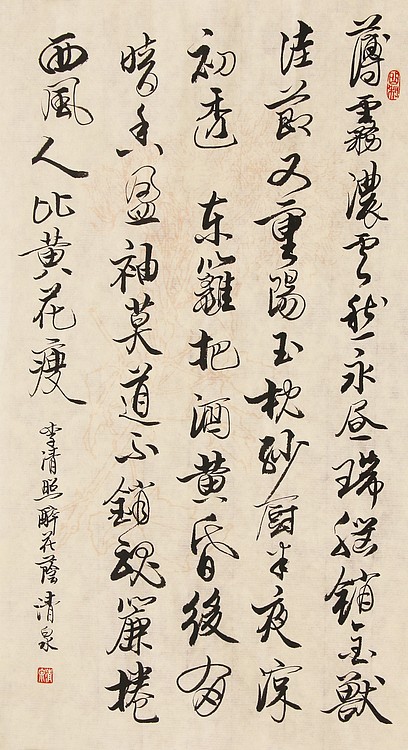 薄霧濃雲愁永昼瑞腦銷金獸
佳節又重陽玉枕紗厨半夜涼
初透 東籬把酒黄昏後有
暗香盈袖莫道不銷魂簾捲
西風人比黄花瘦
李清照醉花蔭清泉